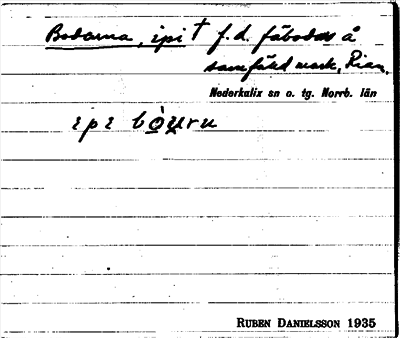 Bodarna, ipi † f.d. fäbodar å
samfälld mark, Rian,
Nederkalix sn o. tg. Norrb. län
ipi bòu̯ru
RUBEN DANIELSSON 1935